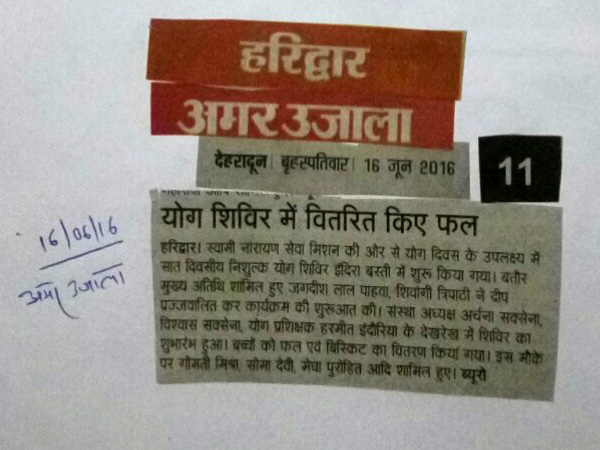 हरिद्वार
अमर उजाला
देहरादून। बृहस्पतिवार। 16 जून 2016
11
योग शिविर में वितरित किए फल
हरिद्वार। स्वामी नारायण सेवा मिशन की ओर से योग दिवस के उपलक्ष्य में
सात दिवसीय निशुल्क योग शिविर इंदिरा बस्ती में शुरू किया गया। बतौर
मुख्य अतिथि शामिल हुए जगदीश लाल पाहवा, शिवांगी त्रिपाठी ने दीप
प्रज्जवालित कर कार्यक्रम की शुरूआत की। संस्था अध्यक्ष अर्चना सक्सेना,
विश्वास सक्सेना, योग प्रशिक्षक हरमीत इंदौरिया के देखरेख में शिविर का
शुभारंभ हुआ। बच्चों को फल एवं बिस्किट का वितरण किया गया। इस मौके
पर गोमती मिश्रा, सोमा देवी, मेघा पुरोहित आदि शामिल हुए। ब्यूरो
16/06/16
अमर उजाला